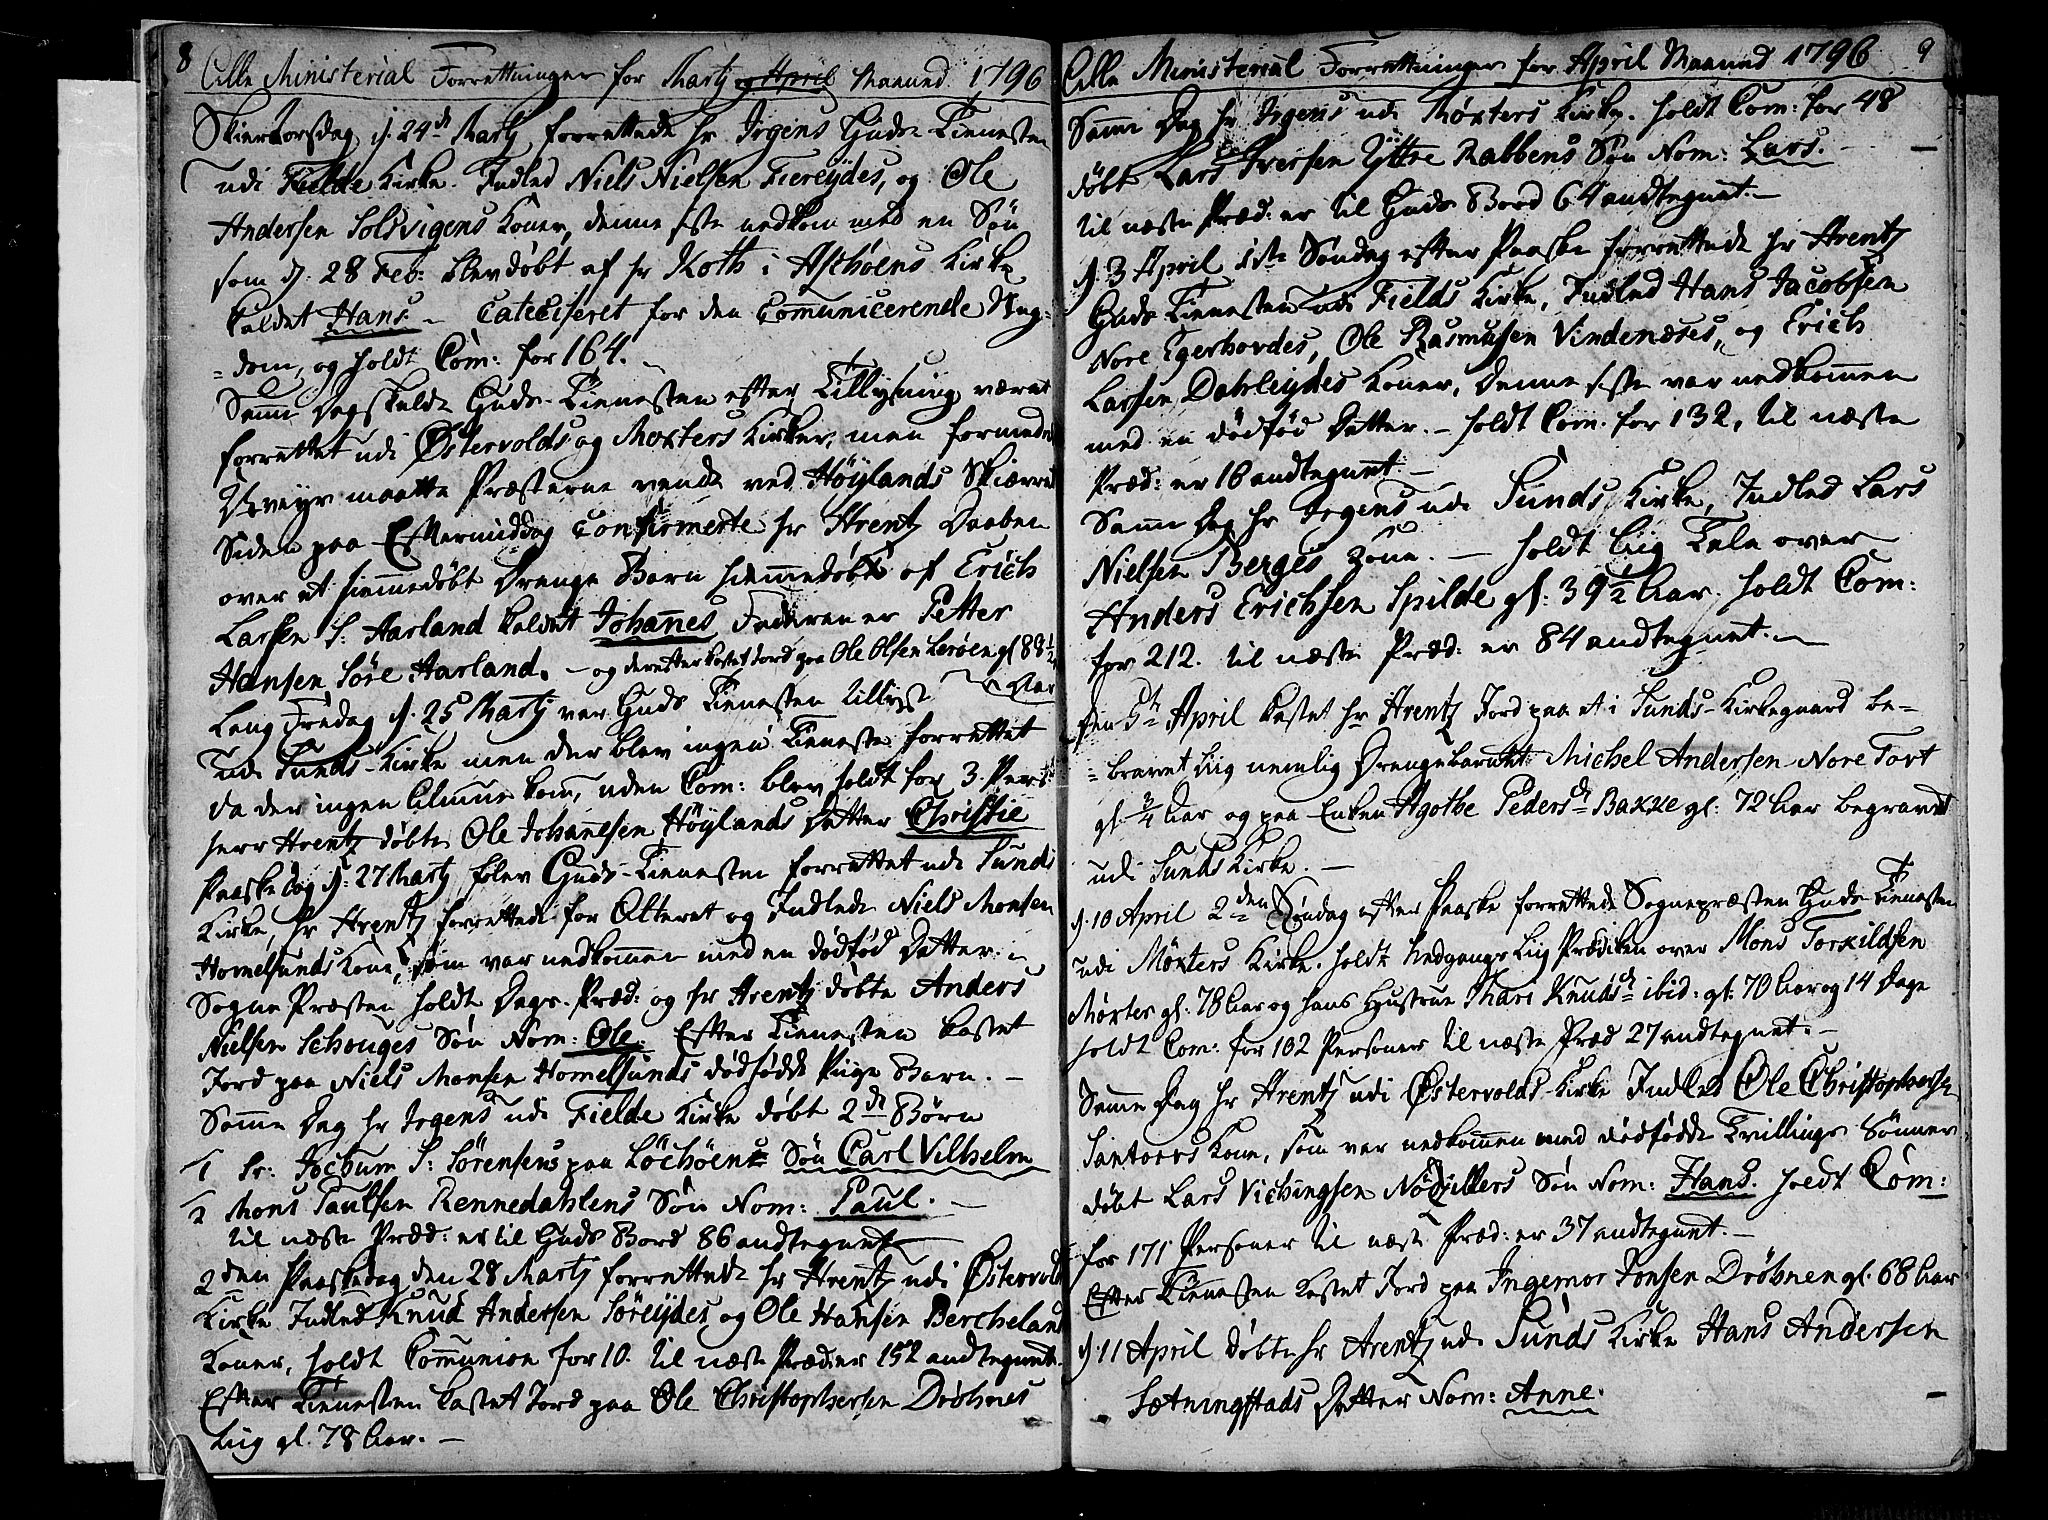 8
Alle Ministerial Forrettninger for Martj og April Maaned 1796
Skiertorsdag d. 24de Martj forrettede hr Irgens Guds Tienesten
udi Fielde Kirke. Indled Niels Nielsen Fiereydes, og Ole
Andersen Solsvigens Koner, denne siste nedkom med en Søn
som d. 28 Feb: blev døbt af hr Koth i Aschøens Kirke
kaldet Hans. – Cateciseret for den Comunicerende Ung=
=dom, og holdt Com: for 164. –
Samme Dag skulde Guds-Tienesten efter Tillysning været
forrettet udi Østervolds og Møxters Kirker, men formedelst
Uveyr maatte Præsterne vende ved Høylands Skiærret
Siden paa Eftermiddag Confirmerte hr Arentz Daaben
over et hiemmedøbt Drenge Barn hiemmedøbt af Erich
Larsen S: Aarland kaldet Johannes Faderen er Petter
Hansen Søre Aarland. – og derefter kastet Jord paa Ole Olsen Lerøen gl 88 1/2
Aar
Lang Fredag d. 25 Martj var Guds Tienesten tillyst
udi Sunds-Kirke men der blev ingen Tieneste forrettet
da der ingen Almue kom, uden Com: blev holdt for 3 Pers:
herr Arentz døbte Ole Johannesen Høylands Datter Christie
Paaske dag d: 27 Martj blev Guds-Tienesten forrettet udi Sunds
Kirke, hr Arentz forrettede for Alteret og Indlede Niels Monsen
Homelsunds Kone, som var nedkommen med en dødfød Datter. –
Sogne Præsten holdt Dags-Præd: og hr Arentz døbte Anders
Nielsen Schouges Søn Nom: Ole. Efter Tienesten kastet
Jord paa Niels Monsen Homelsunds dødfødde Piige Barn. –
Samme Dag hr Irgens udi Fielde Kirke døbt 2de Børn
1 Sr: Jochum S: Sørensens paa Løchøens Søn Carl Vilhelm
2 Mons Paulsen Rennedahlens Søn Nom: Paul. –
til næste Præd: er til Guds Bord 86 andtegnet
2den Paaskedag den 28 Martj forrettede hr Arentz udi Østervolds
Kirke Indled Knud Andersen Søreydes og Ole Hansen Bercheland
Koner, holdt Communion for 10. til næste Præd: er 152 andtegnet.
Efter Tienesten kastet Jord paa Ole Christophersen Drøhnes
Liig gl. 78 Aar. –
Alle Ministerial Forrettninger for April Maaned 1796
9
Samme Dag hr Irgens udi Møxters Kirke. holdt Com: for 48
døbt Lars Iversen Yttre Rabbens Søn Nom: Lars. –
til næste Præd: er til Guds Bord 64 andtegnet. –
d. 3 April 1ste Søndag efter Paaske forrettede hr Arentz
Guds Tienesten udi Fields Kirke, Indled Hans Jacobsen
Nore Egerhovdes, Ole Rasmusen Vindenæses, og Erich
Larsen Dahleydes Koner, denne siste var nedkommen
med en dødfød Datter. – holdt Com. for 132, til næste
Præd: er 18 andtegnet –
Samme Dag hr Irgens udi Sunds Kirke, Indled Lars
Nielsen Berges Kone. – holdt Liig Tale over
Anders Erichsen Spilde gl: 39 1/2 Aar. holdt Com:
for 212. til næste Præd: er 84 andtegnet. –
den 5te April kastet hr Arentz Jord paa et i Sunds-Kirkegaard be=
=gravet Liig nemlig Drengebarnet Michel Andersen Nore Tovt
gl. 3/4 Aar og paa Enken Agothe Pedersdr Bakke gl: 72 Aar begravet
udi Sunds Kirke. –
d. 10 April 2den Søndag efter Paaske forrettede Sognepræsten Guds-Tienesten
udi Møxters Kirke. holdt Nedgangs Liig Prædiken over Mons Torkildsen
Møxter gl: 78 Aar og hans Hustrue Mari Knudsdr ibid: gl: 70 Aar og 14 Dage
holdt Com: for 102 Personer til næste Præd 27 andtegnet. –
Samme Dag hr Arentz udi Østervolds-Kirke Indled Ole Christophersen
Santorvs Kone, som var nedkommen med dødfødde Tvillings Sønner
døbt Lars Vichingsen Nøsillers Søn Nom: Hans. holdt Com:
for 171 Personer til næste Præd: er 37 andtegnet. –
Efter Tienesten kastet Jord paa Ingemor Jonsen Drøhnen gl. 68 Aar
d. 11 April døbte hr Arentz udi Sunds Kirke Hans Andersen
Sætningstads Datter Nom: Anne.